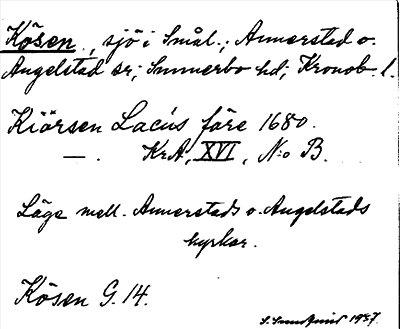 Kösen, sjö i Smål.; Annerstad o.
Angelstad sn; Sunnerbo hd; Kronob. l.
Kiörsen Lacus före 1680.
— . KrA, XVI, N:o B.
Läge mell. Annerstads o. Angelstads
kyrkor.
Kösen G. 14.
S. Sundquist 1937.